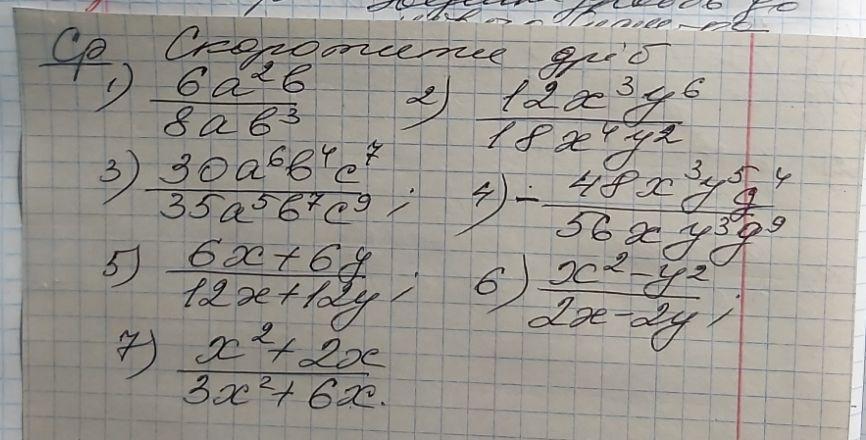 Ср Скоротите дріб
1) 6a²b / 8ab³ 2) 12x³y⁶ / 18x⁴y²
3) 30a⁶b⁴c⁷ / 35a⁵b⁷c⁹ ; 4) - 48x³y⁵g⁴ / 56xy³g⁹
5) 6x+6y / 12x+12y ; 6) x²-y² / 2x-2y ;
7) x²+2x / 3x²+6x.